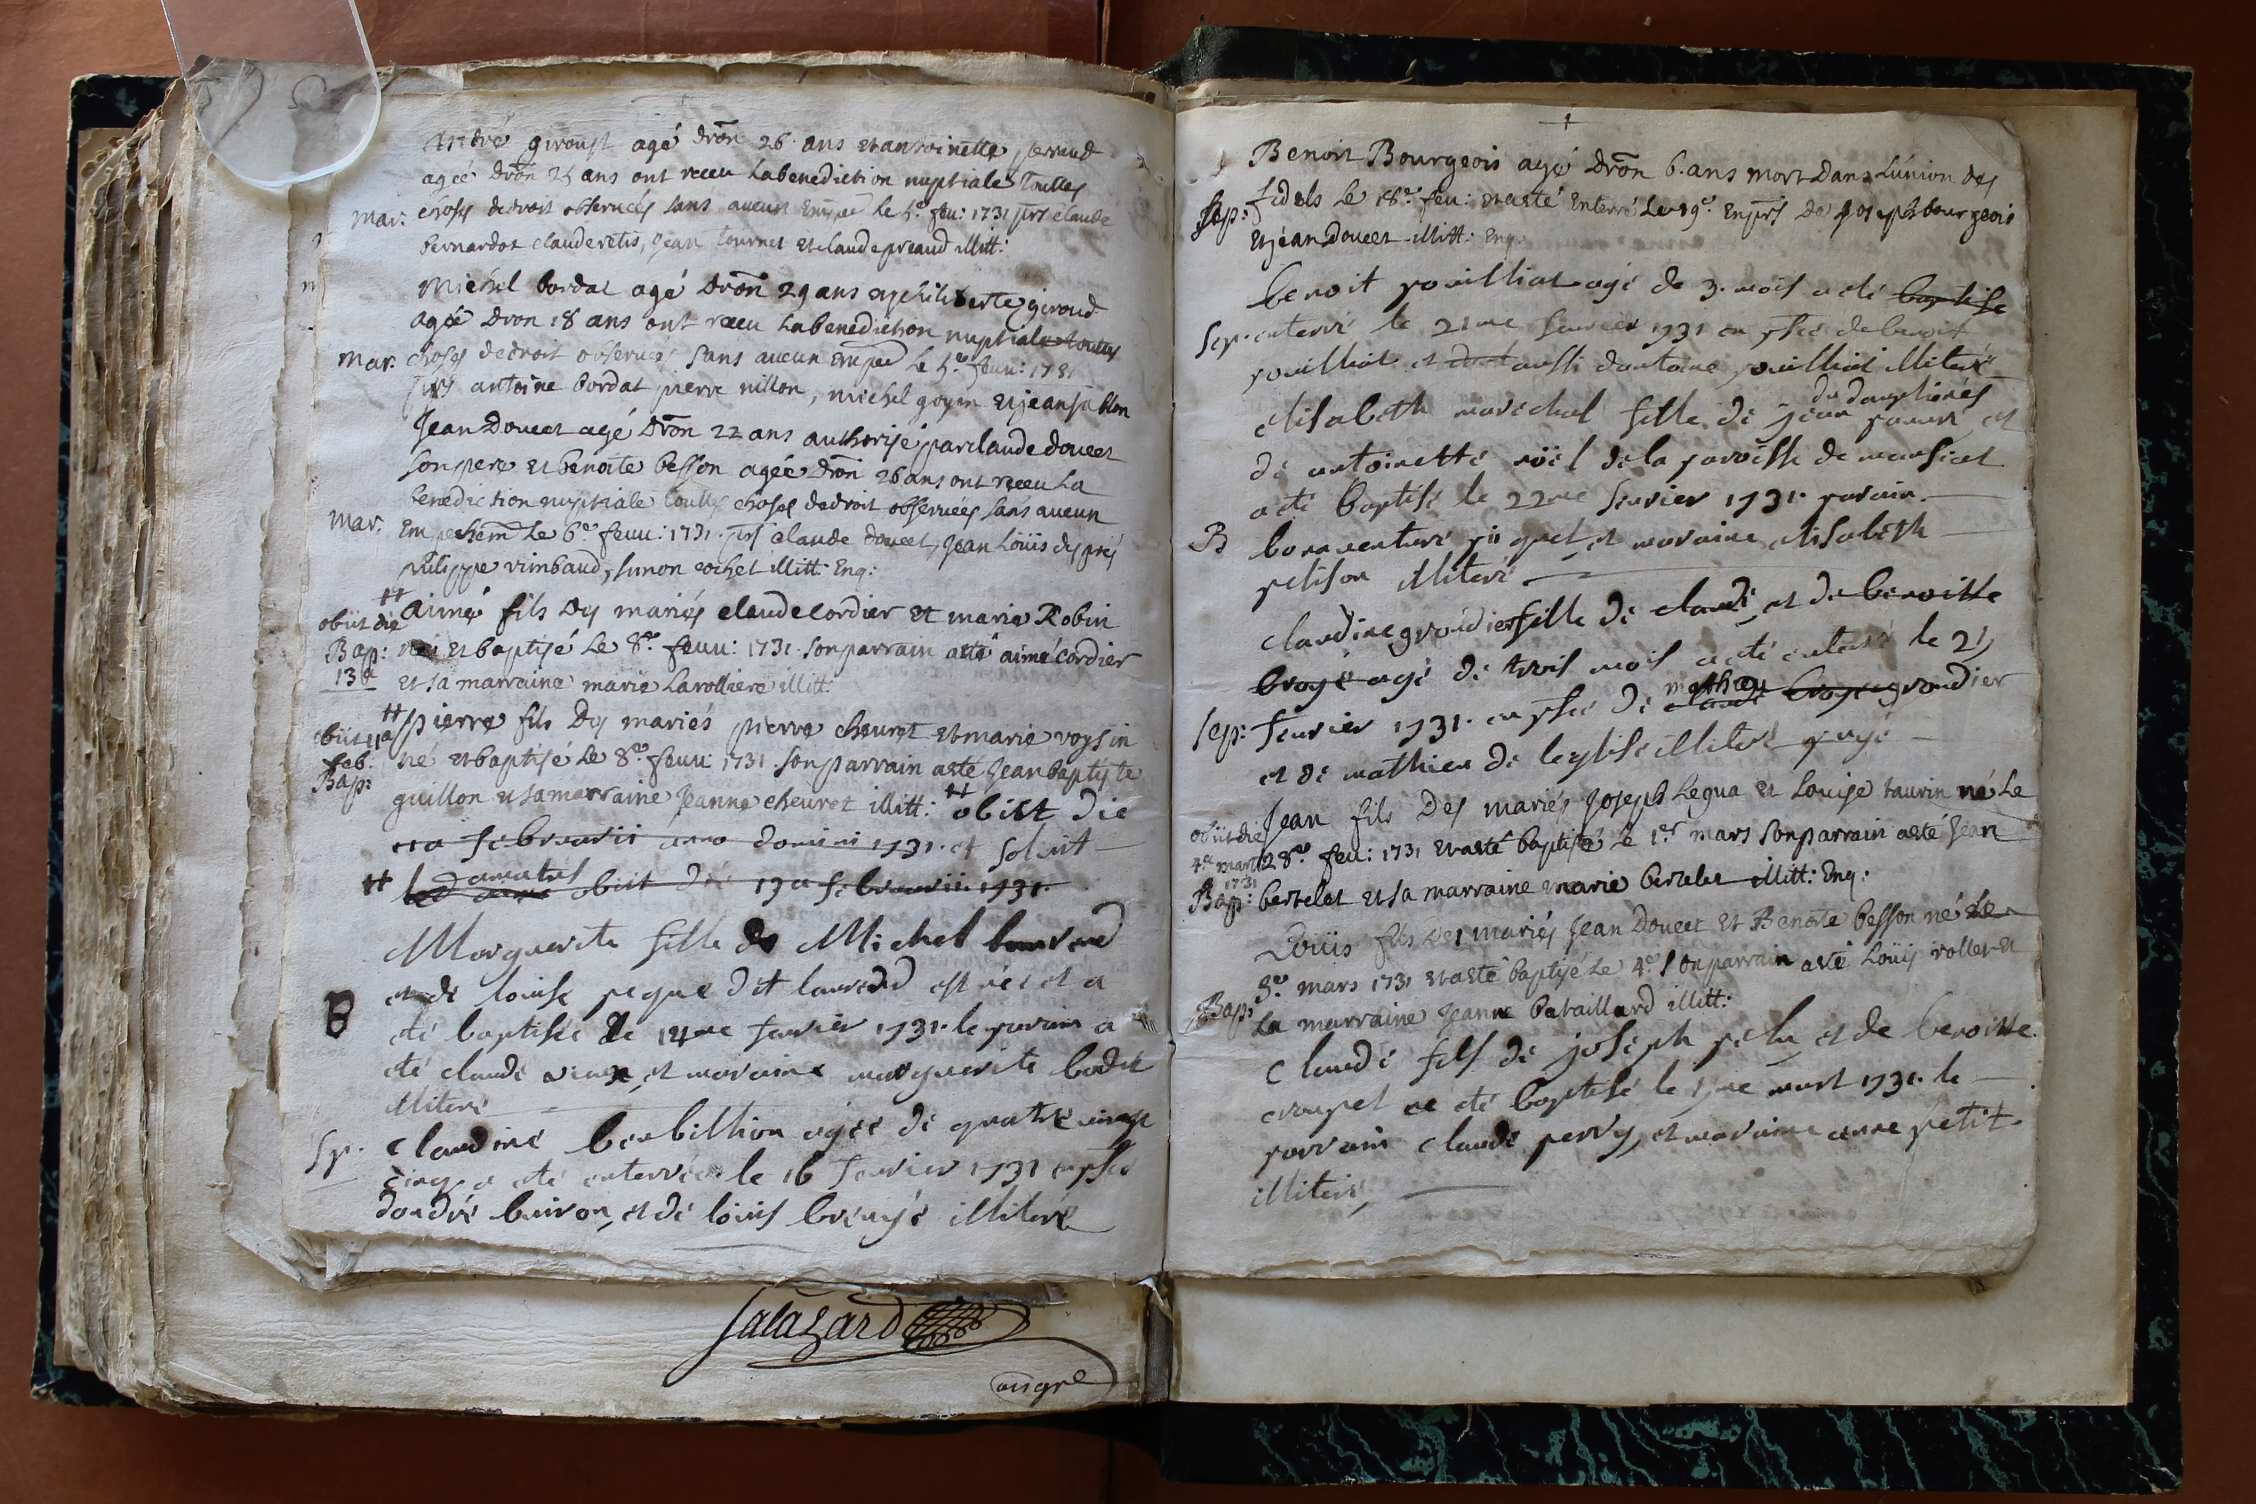 André giroust agé dron 26 ans et antoinette perrud
agée dron 25 ans ont receu la benediction nuptiale touttes
mar: choses de droit observées sans aucun le 5e feu: 1731 claude
bernardot claude retis, jean tournus et claude preaud illitt:
Michel bordat agé dron 29 ans et philiberte giroud
agée dron 18 ans ont receu la benediction nuptiale touttes
mar: choses de droit observées sans aucun le 5e feuu: 1731
antoine bordat pierre nillon, michel goyen et jean jablon
Jean Doucet agé dron 22 ans authorisé par claude doucet
son pere et benoite besson agée dron 26 ans ont receu la
benediction nuptiale touttes choses de droit observées sans aucun
mar. Empechem le 6e feuu: 1731. claude doucet, jean Loüis des prés
philippe rimbaud, simon rochet illitt: Enq:
aimé fils des mariés claude cordier et marie Robin
obiit die Bap: 13a né et baptisé le 8e feuu: 1731. son parrain a eté aimé cordier
et sa marraine marie Larolliere illitt:
Pierre fils des mariés pierre cheuret et marie voysin
obiit 11a feb. Bap: né et baptisé le 8e feuu: 1731. son parrain a eté jean baptiste
guillon et sa marraine jeanne cheuret illitt: obiit die
februarii anno domini 1731. et soluit
amatus obiit die 13a februarii 1731.
Marguerite fille de Michel
et de louise peque dit laurend est née et a
B eté baptisée le 14me feurier 1731. le parain a
eté claude et maraine marguerite bodit
illiteré
Sp. Claudine berbillion agée de quatre vingt
cinq a eté enterrée le 16 feurier 1731 en
d'andré buiron, et de louis illiteré
Salazard
ongre
Benoit Bourgeois agé dron 6. ans mort dans l'union des
Sep: fidels le 18e feu: et a eté enterré le 19e. de joseph bourgeois
et jean doucet illitt: Enq:
benoit pouilliat agé de 3. mois a eté baptise
Sep. enterré le 21me feurier 1731 en de benoit
pouilliat et aussi d'antoine pouilliat illiteré
du dauphinés
elisabeth marechal fille de jean et
de antoinette nöel de la paroisse de marsiat
a eté baptisé le 22me feurier 1731. parain
B bonaventure piquet et maraine elisabeth
pelison illiteré
claudine groudier fille de claude et de benoitte
broyé agé de trois mois a eté enterré le 25
mathey
Sep: feurier 1731. en de claude broye groudier
et de mathieu de leglise illiteré
Jean fils des mariés joseph Legua et Louise taurin né le
obiit die 4a martii 1731 28e feu: 1731 et a eté baptisé le 1er mars son parrain a eté jean
Bap: bertelet et sa marraine marie bertelet illitt: Enq:
Loüis fils des mariés jean doucet et Benoite besson né le
3e mars 1731 et a eté baptisé le 4e. son parrain a eté Loüis rollet et
Bap: la marraine jeanne bataillard illitt:
Claude fils de joseph pelu et de benoitte
croupet a eté baptisé le 5me mart 1731. le
parrain claude perry, et maraine anne petit
illiteré